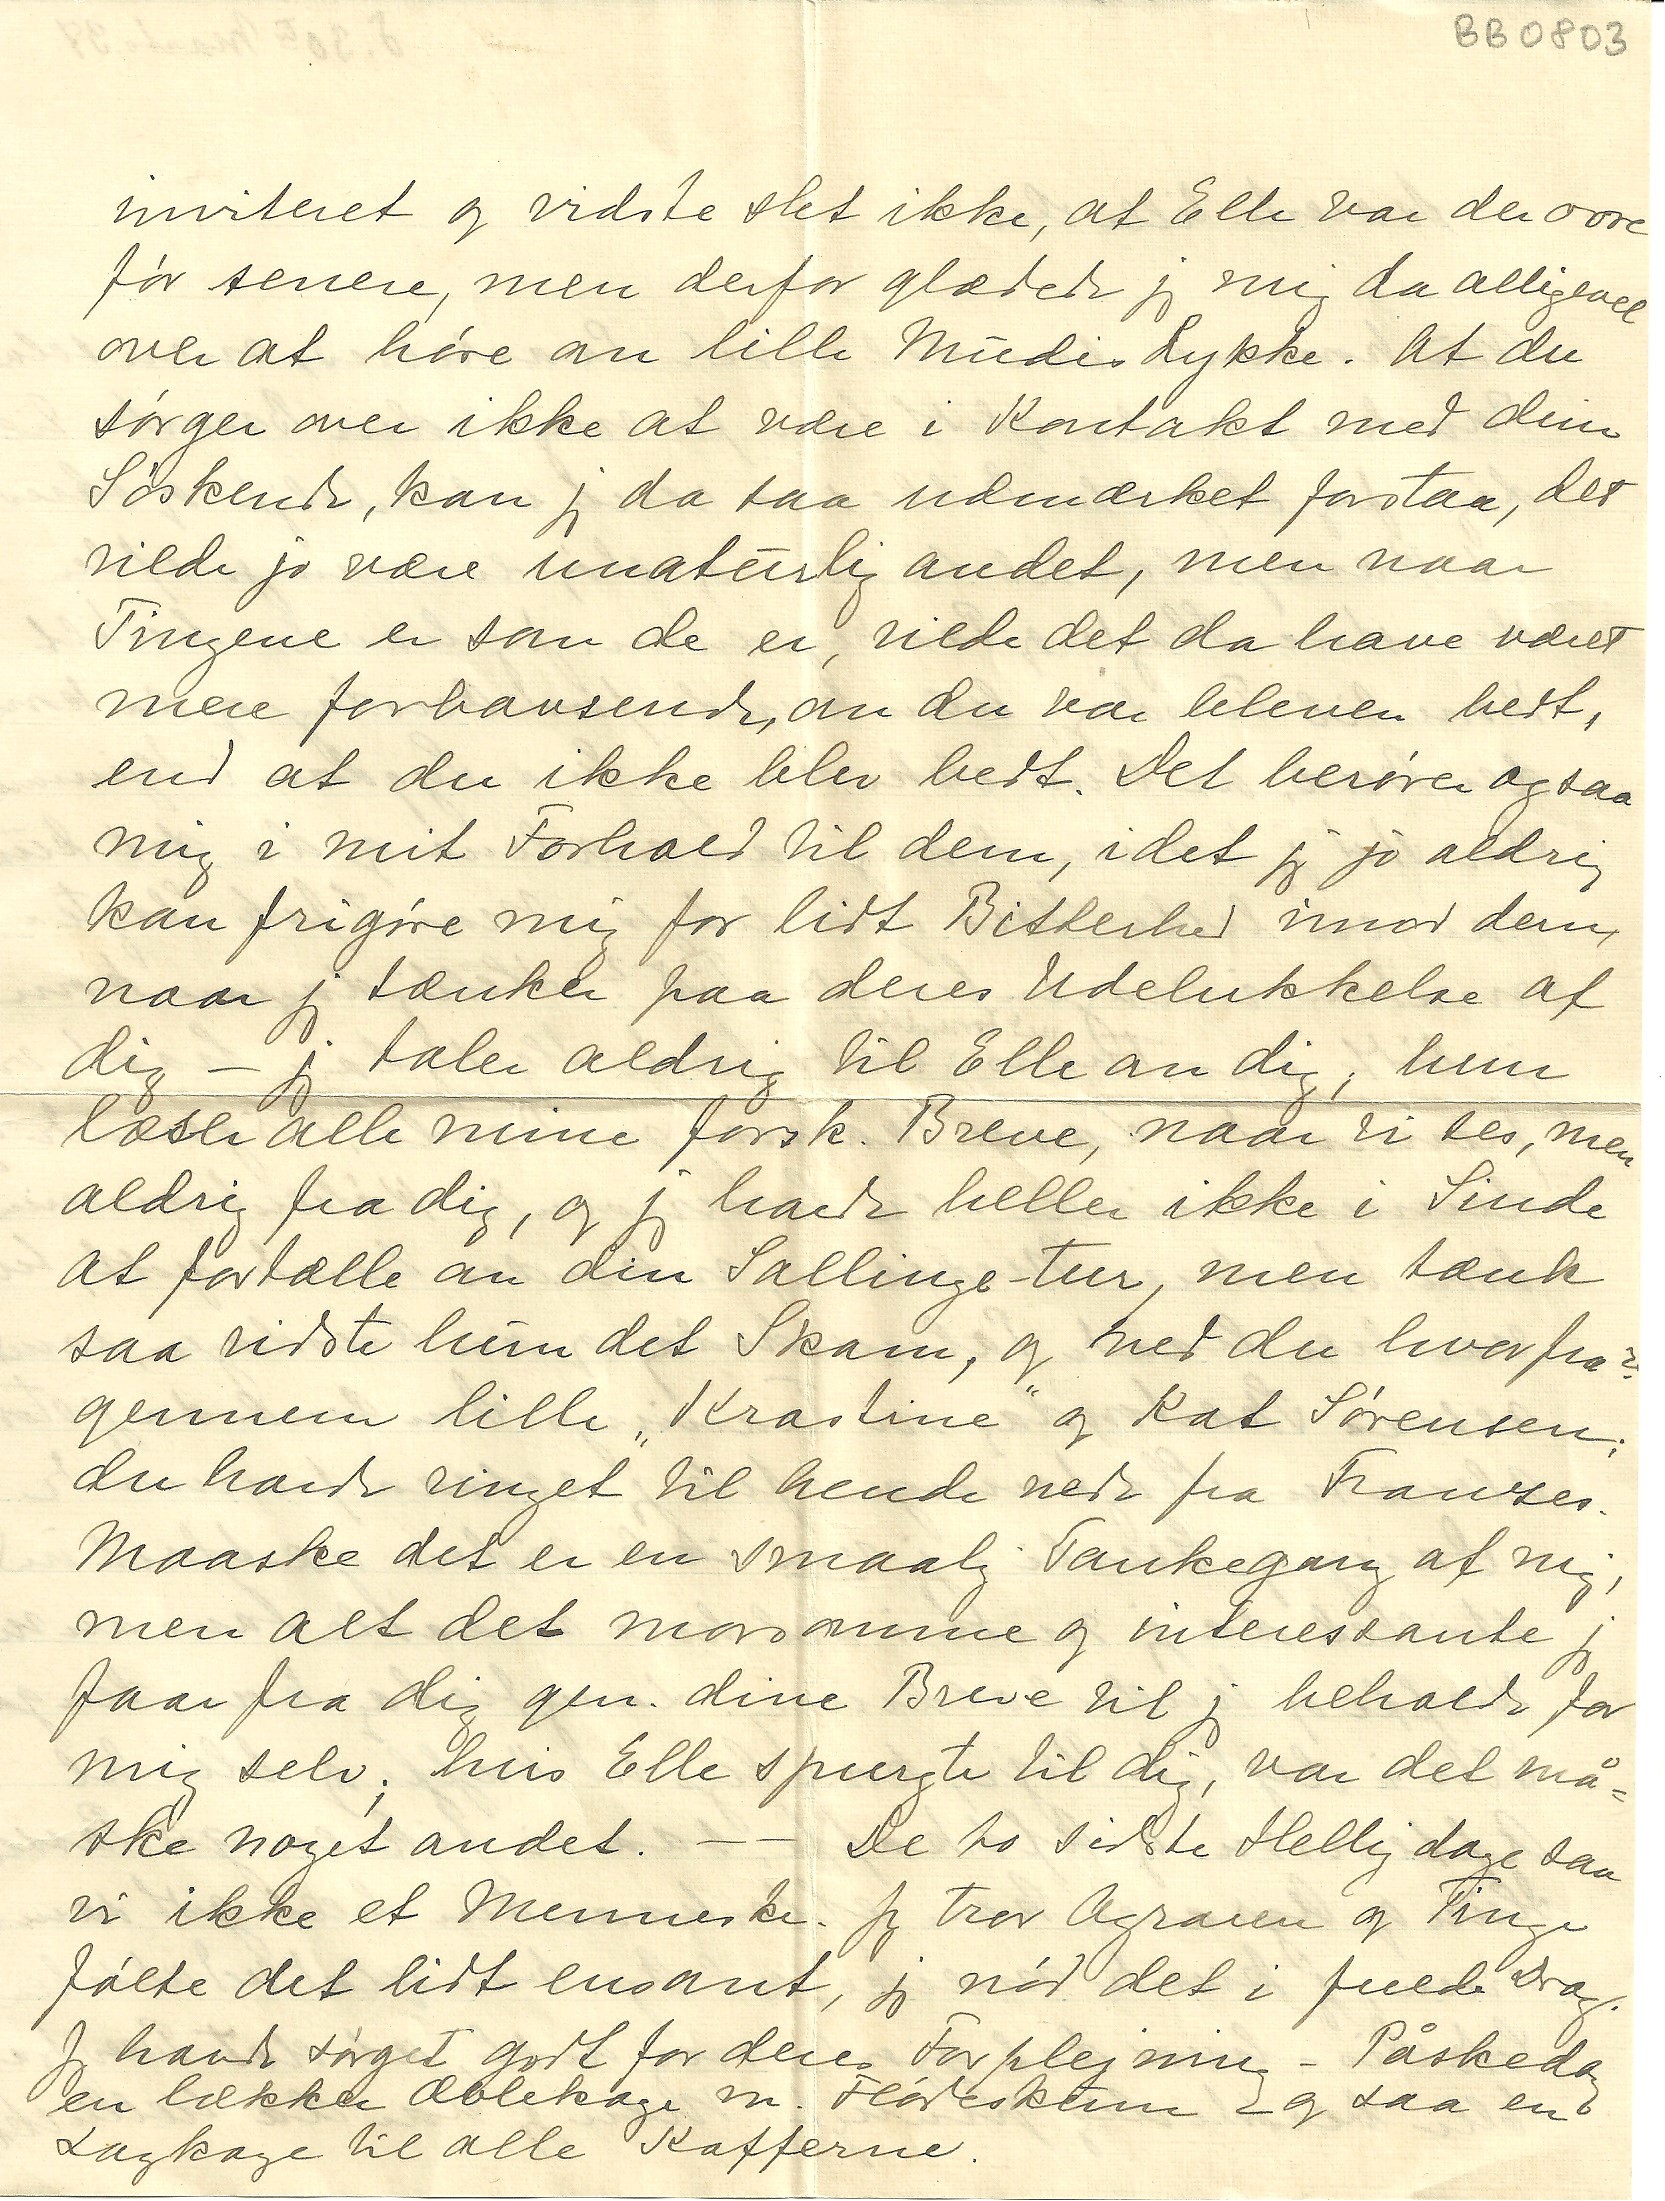 BB0803
inviteret og vidste slet ikke, at Elle var der ovre
før senere, men derfor glædede jg mig da alligevel
over at høre om lille Mudis Lykke. At du
sørger over ikke at være i Kontakt med dine
Søskende, kan jg da saa udmærket forstaa, det
vilde jo være unaturlig andet, men naar
Tingene er som de er, vilde det da have været
mere forbavsende, om du var bleven bedt,
end at du ikke blev bedt. Det berører ogsaa
mig i mit Forhold til dem, idet jg jo aldrig
kan frigøre mig for lidt Bitterhed imod dem,
naar jg tænker paa deres Udelukkelse af
dig — jg taler aldrig til Elle om dig; hun
læser alle mine forsk. Breve, naar vi ses, men
aldrig fra dig, og jg havde heller ikke i Sinde
at fortælle om din Sallinge-tur, men tænk
saa vidste hun det Skam, og ved du hvorfra?
gennem lille „Krastine“ og Kat Sørensen;
du havde ringet til hende nede fra Franses.
Maaske det er en smaalig Tankegang af mig,
men alt det morsomme og interessante jg
faar fra dig gen. dine Breve vil jg beholde for
mig selv; hvis Elle spurgte til dig, var det må-
ske noget andet. — — De to sidste Helligdage saa
vi ikke et Menneske. Jg tror Agraren og Tinge
følte det lidt ensomt, jg nød det i fulde Drag.
Jg havde sørget godt for deres Forplejning — Påskedag
en lækker Æblekage m. Flødeskum — og saa en
Lagkage til alle Kafferne.